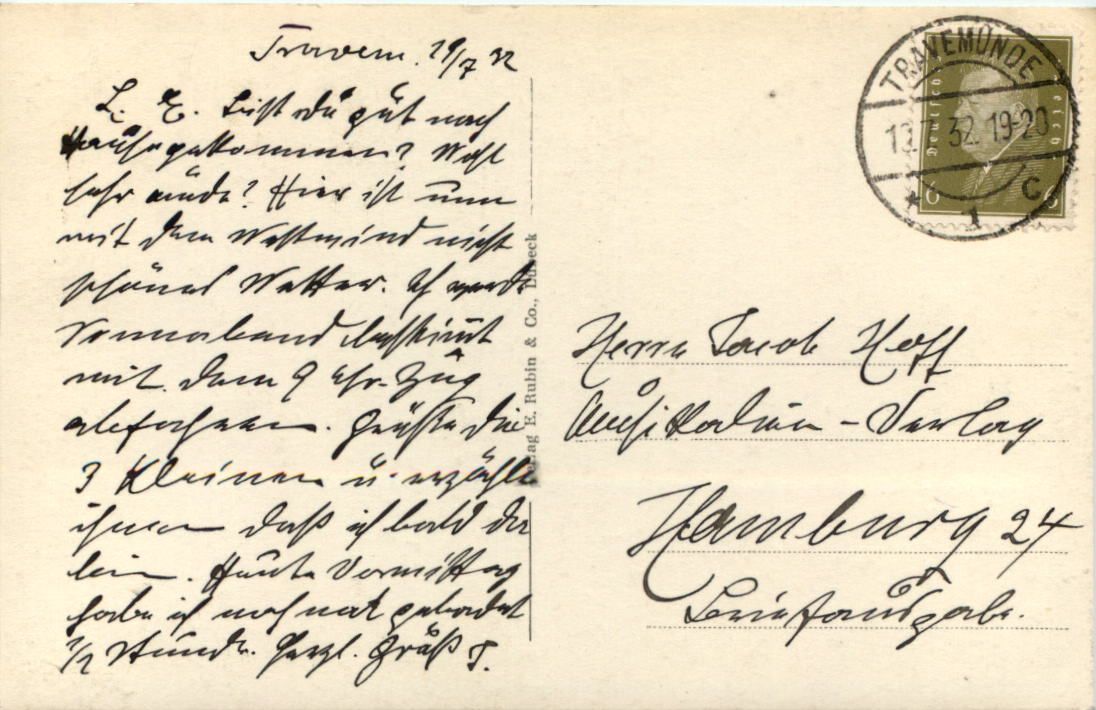 Travem. 19/7 32
L. E. Bist du gut nach
Hause gekommen? Wohl
sehr müde? Hier ist nun
mit dem Westwind nicht
schönes Wetter. Ich werde
Sonnabend bestimmt
mit dem 9 Uhr-Zug
abfahren. Grüße die
3 Kleinen u. erzähle
ihnen daß ich bald da
bin. Heute Vormittag
habe ich noch mal gebadet
1/2 Stunde. Herzl. Gruß J.
Verlag E. Rubin & Co., Lübeck
TRAVEMÜNDE
32.19-20
* 1 C
Deutsches Reich
6 6
Herrn Jacob Hoff
Verlag
Hamburg 24
Briefausgabe.